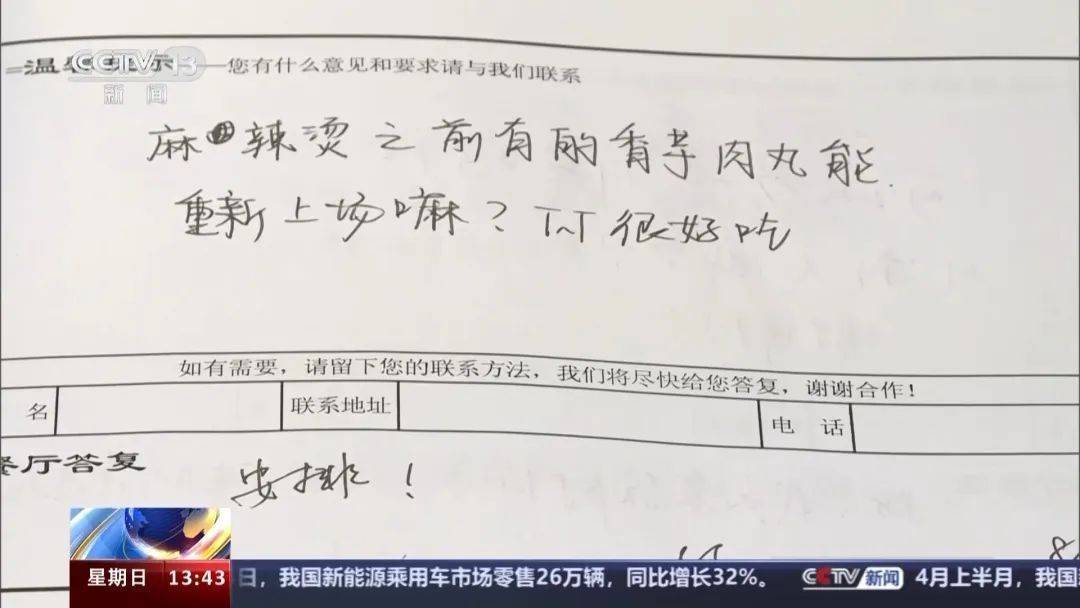 CCTV-13
新闻
温馨提示——您有什么意见和要求请与我们联系
麻辣烫之前有的香芋肉丸能
重新上场嘛？T~T 很好吃
如有需要，请留下您的联系方法，我们将尽快给您答复，谢谢合作！
名 联系地址 电 话
餐厅答复 安排！
星期日 13:43 日，我国新能源乘用车市场零售26万辆，同比增长32%。 CCTV新闻 4月上半月，我国